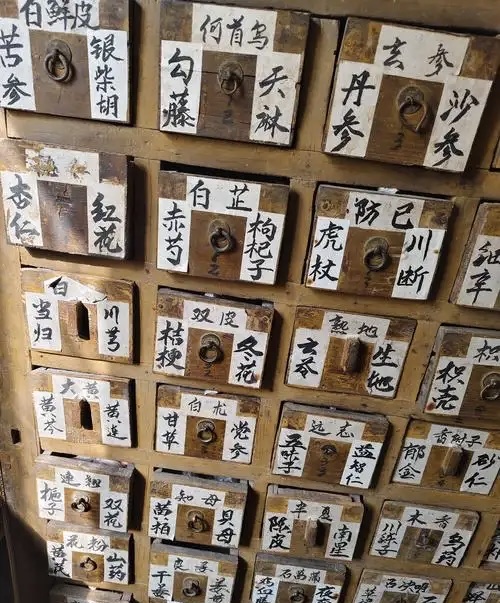 白鲜皮
苦参
银柴胡
何首乌
勾藤
天麻
玄参
丹参
沙参
杏仁
红花
白芷
赤芍
枸杞子
防已
虎杖
川断
细辛
白
当归
川芎
双皮
桔梗
冬花
熟地
云苓
生地
枳
枳壳
大黄
黄芩
黄连
白术
甘草
党参
远志
五味子
益智仁
香附子
郁金
砂仁
连翘
栀子
双花
知母
黄柏
贝母
半夏
陈皮
南星
木香
川楝子
乌药
花粉
山药
石菖蒲